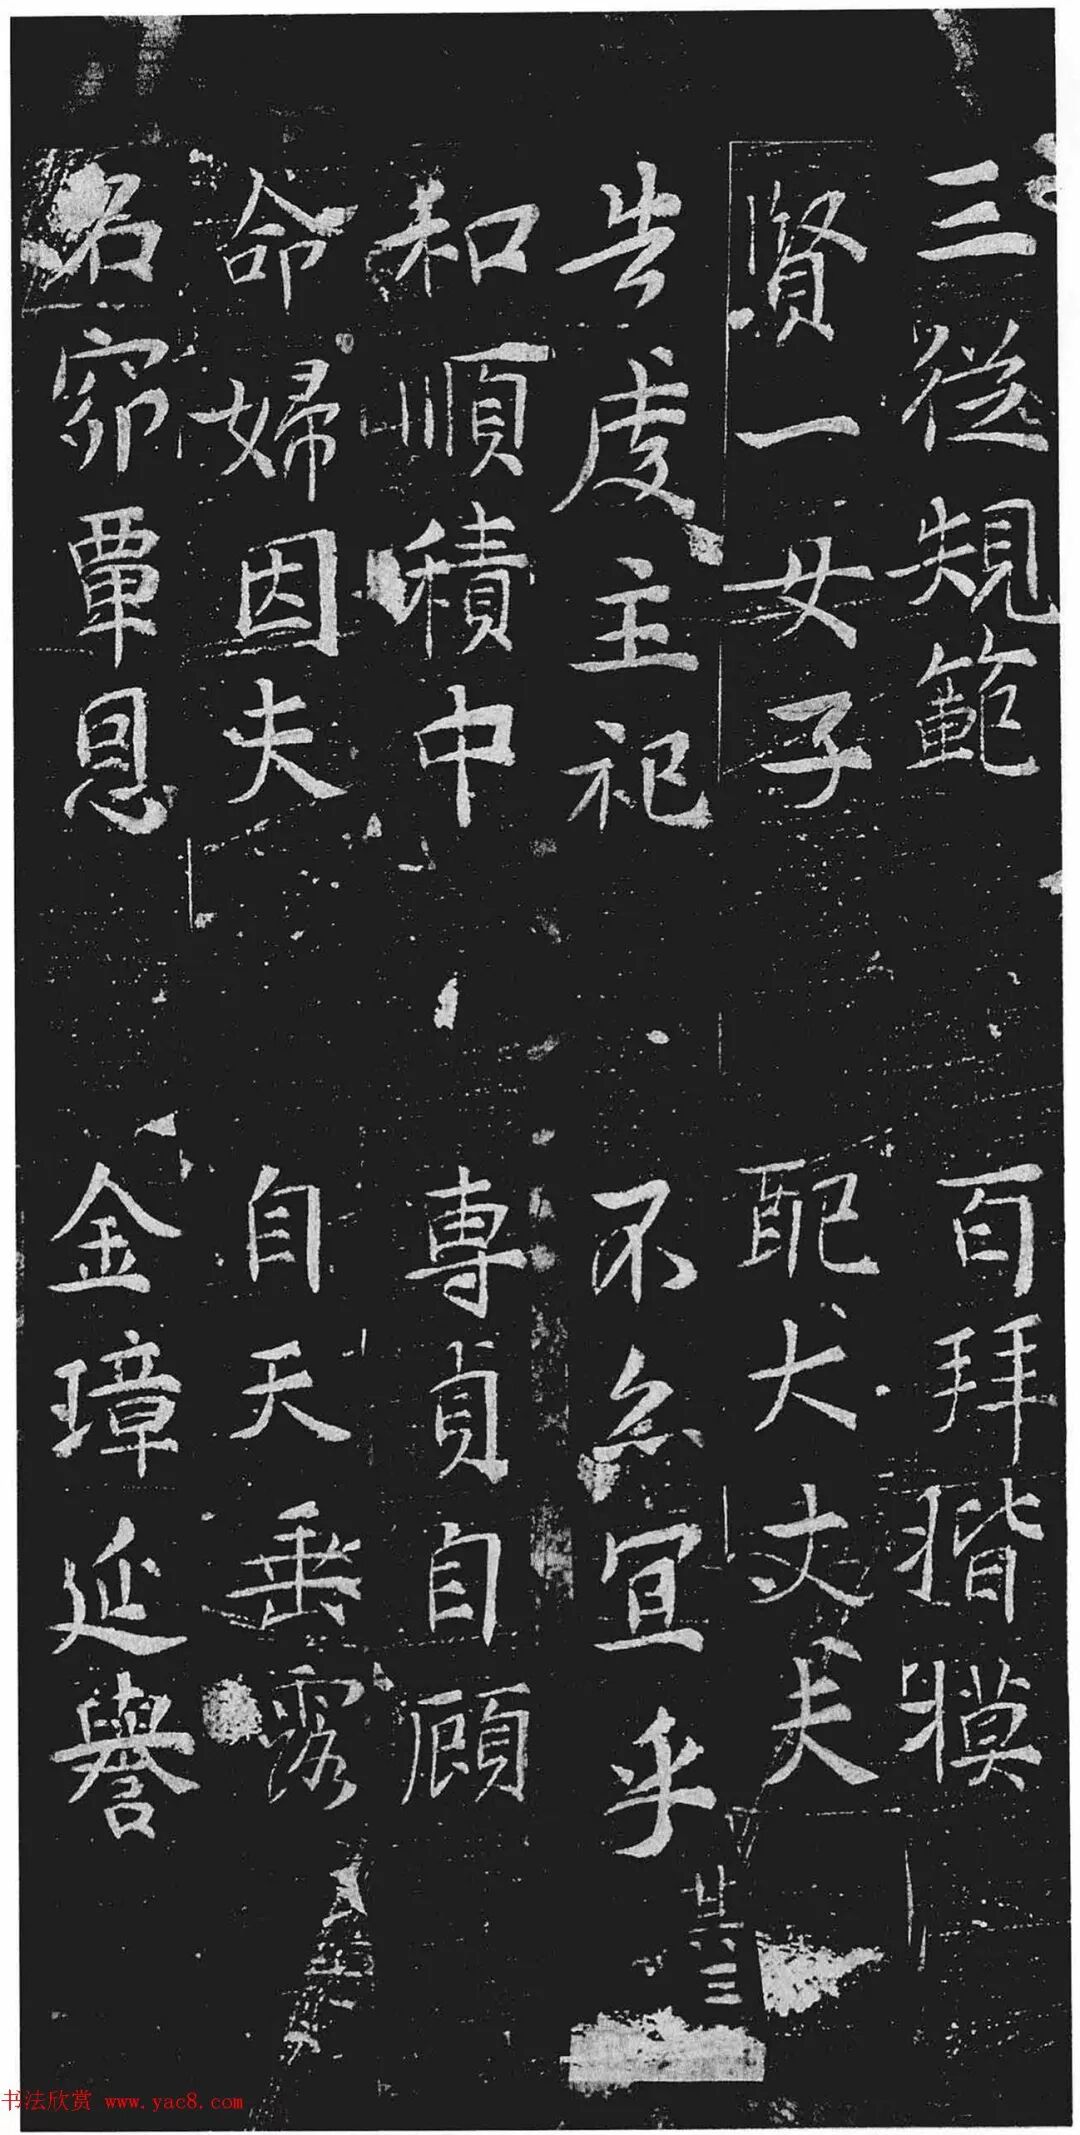 三從規範
賢一女子
告虔主祀
和順積中
命婦因夫
名窌覃恩
百拜揩模
配大丈夫
不亦宜乎
專貞自顧
自天垂露
金璋延譽
廿六三
书法欣赏 www.yac8.com